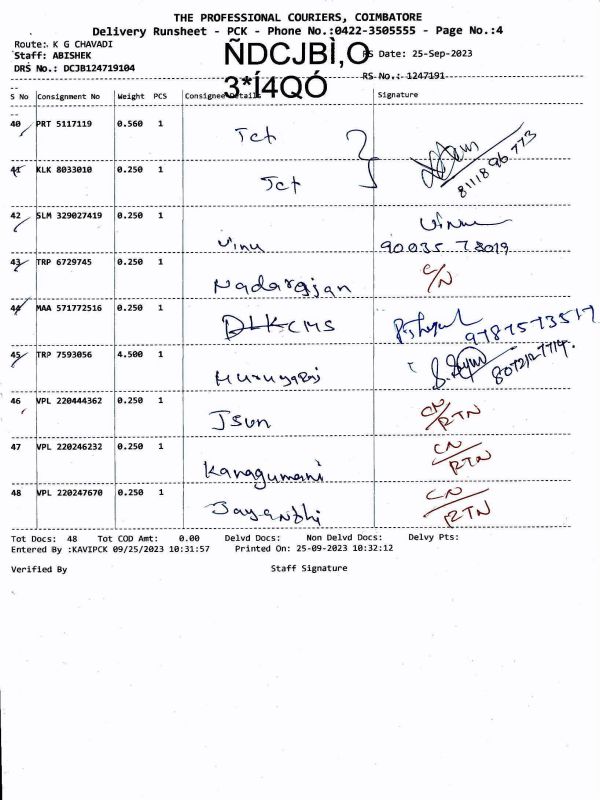 THE PROFESSIONAL COURIERS, COIMBATORE
Delivery Runsheet - PCK - Phone No.:0422-3505555 - Page No.:4
Route: K G CHAVADI
Staff: ABISHEK
DRS No.: DCJB124719104
ÑDCJBÌ,O
3*Í4QÓ
RS Date: 25-Sep-2023
RS No.: 1247191
S No Consignment No Weight PCS Consignee Details Signature
40 PRT 5117119 0.560 1 Tct
81118 96 773
41 KLK 8033010 0.250 1 Tct
42 SLM 329027419 0.250 1 Vinu
90035 78019
43 TRP 6729745 0.250 1 Nadarajan C/N
44 MAA 571772516 0.250 1 CMS 9787573517
45 TRP 7593056 4.500 1
46 VPL 220444362 0.250 1 Jsun CN/RTN
47 VPL 220246232 0.250 1 Kanagumani CN/RTN
48 VPL 220247670 0.250 1 Jayanthi CN/RTN
Tot Docs: 48 Tot COD Amt: 0.00 Delvd Docs: Non Delvd Docs: Delvy Pts:
Entered By :KAVIPCK 09/25/2023 10:31:57 Printed On: 25-09-2023 10:32:12
Verified By Staff Signature